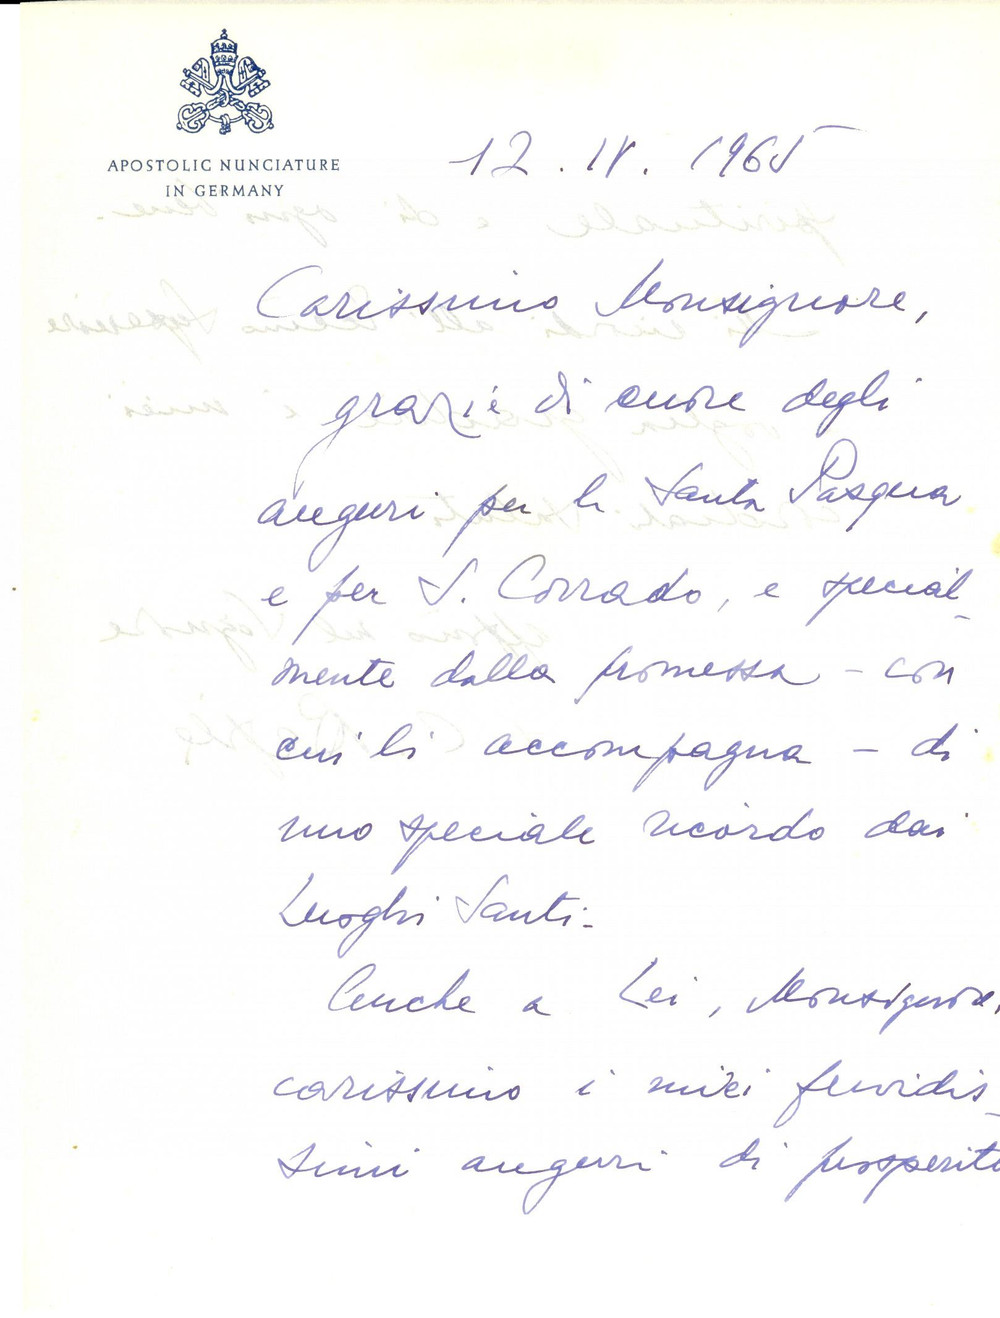 APOSTOLIC NUNCIATURE
IN GERMANY
12. IV. 1965
Carissimo Monsignore,
grazie di cuore degli
auguri per la Santa Pasqua
e per S. Corrado, e special-
mente dalla promessa - con
cui li accompagna - di
uno speciale ricordo dai
Luoghi Santi.
Anche a Lei, Monsignore,
carissimo i miei fervidis-
simi auguri di prosperità